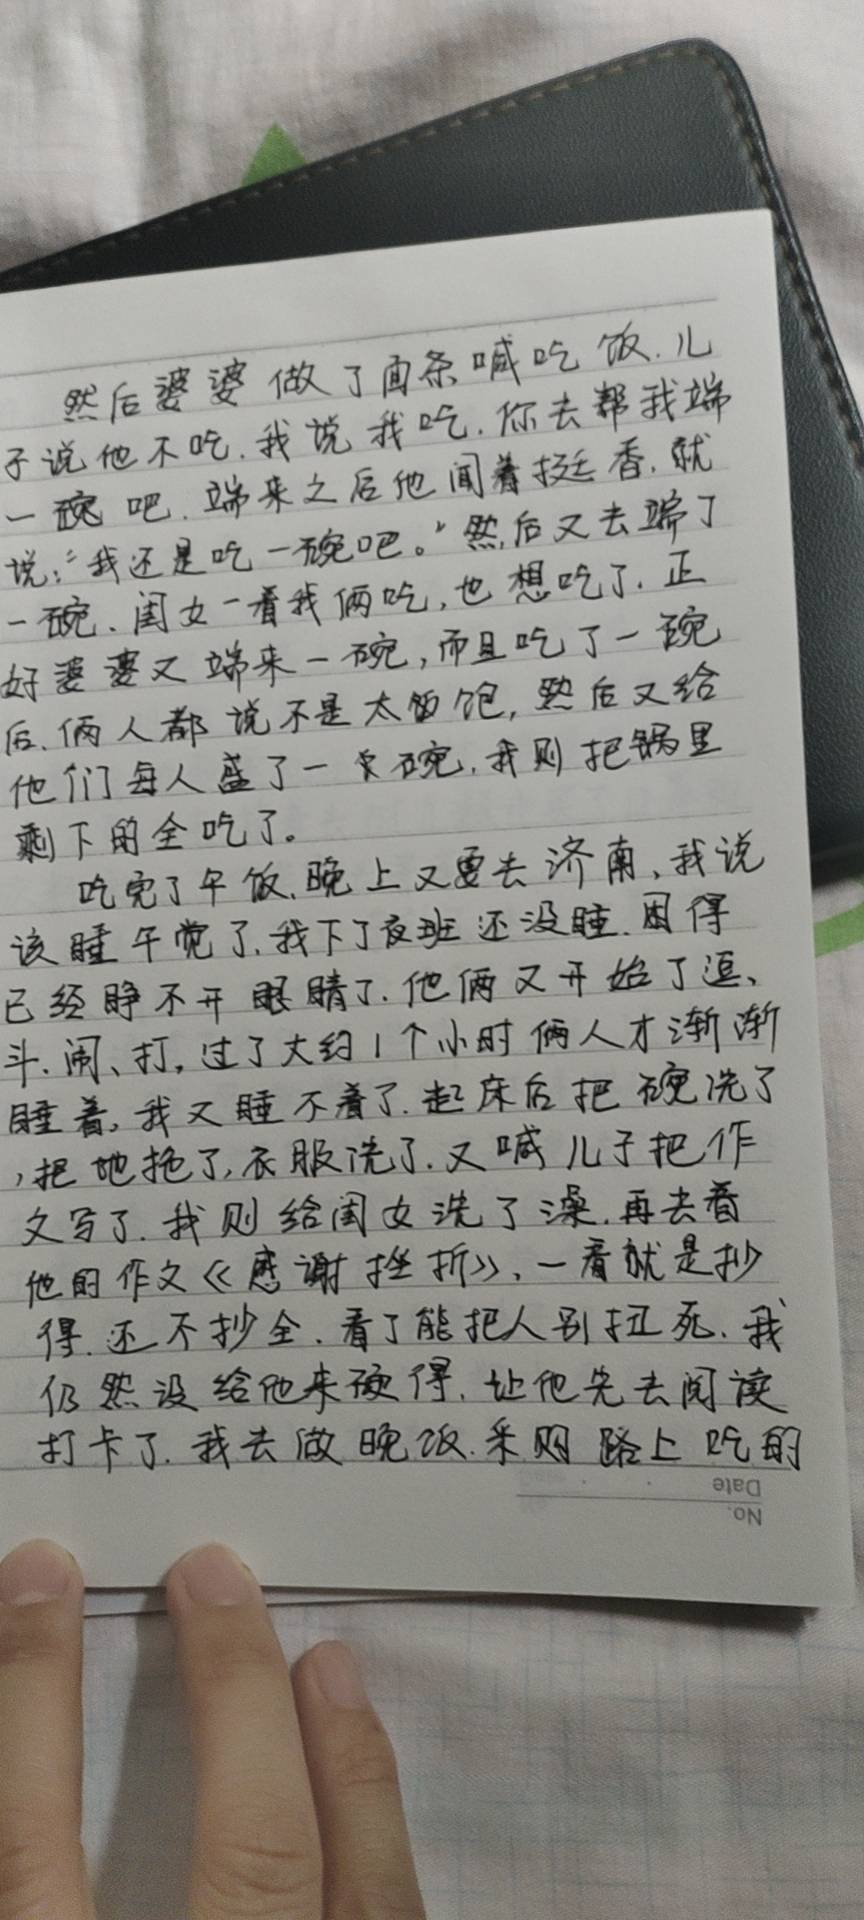 然后婆婆做了面条喊吃饭.儿
子说他不吃.我说我吃.你去帮我端
一碗吧.端来之后他闻着挺香.就
说:“我还是吃一碗吧。”然后又去端了
一碗.闺女一看我俩吃,也想吃了.正
好婆婆又端来一碗,而且吃了一碗
后.俩人都说不是太饱,然后又给
他们每人盛了一碗.我则把锅里
剩下的全吃了。
吃完了午饭.晚上又要去济南、我说
该睡午觉了.我下了夜班还没睡.困得
已经睁不开眼睛了.他俩又开始了逗、
斗.闹、打。过了大约1个小时俩人才渐渐
睡着。我又睡不着了.起床后把碗洗了
,把地拖了,衣服洗了.又喊儿子把作
文写了.我则给闺女洗了澡.再去看
他的作文《感谢挫折》、一看就是抄
得.还不抄全.看了能把人别扭死.我
仍然没给他来硬得.让他先去阅读
打卡了.我去做晚饭.采购路上吃的
Date
No.